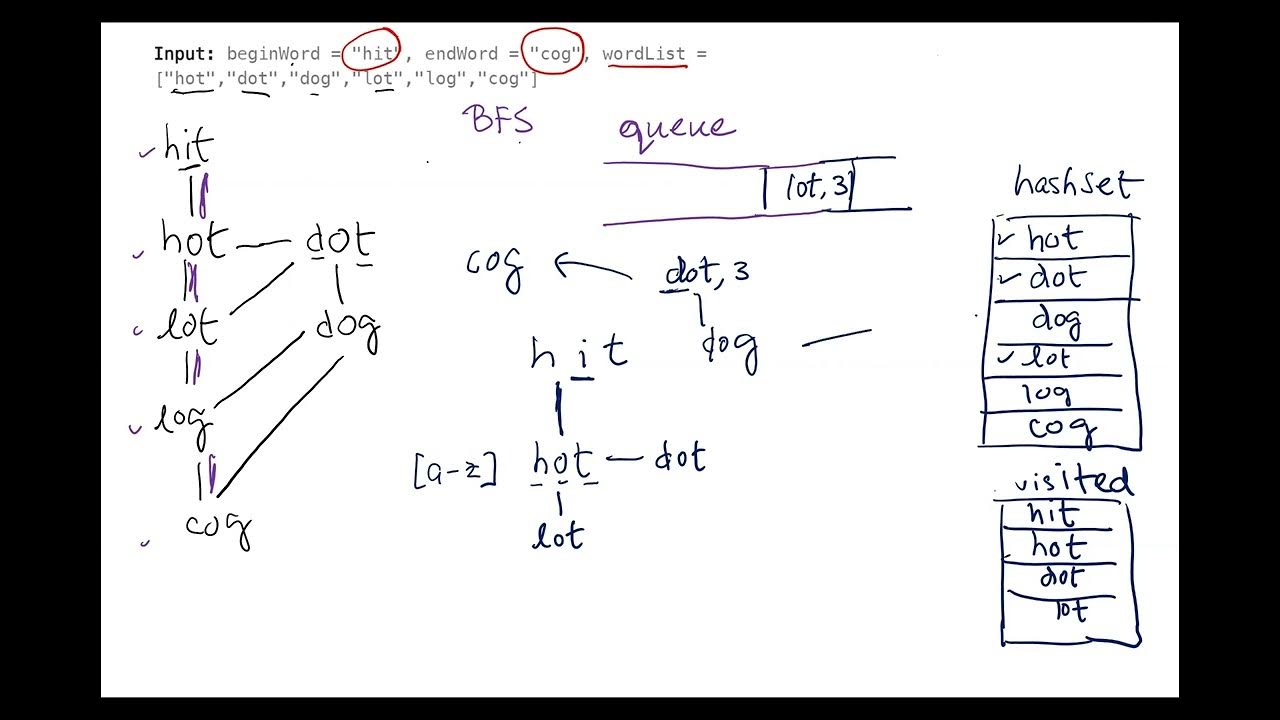 Input: beginWord = "hit", endWord = "cog", wordList =
["hot","dot","dog","lot","log","cog"]
BFS queue
hit
lot, 3
hashset
hot dot
hot
cog dot, 3
dot
lot dog
dog
hit dog
lot
log
log
cog
[a-z] hot dot
visited
cog
lot
hit
hot
dot
lot